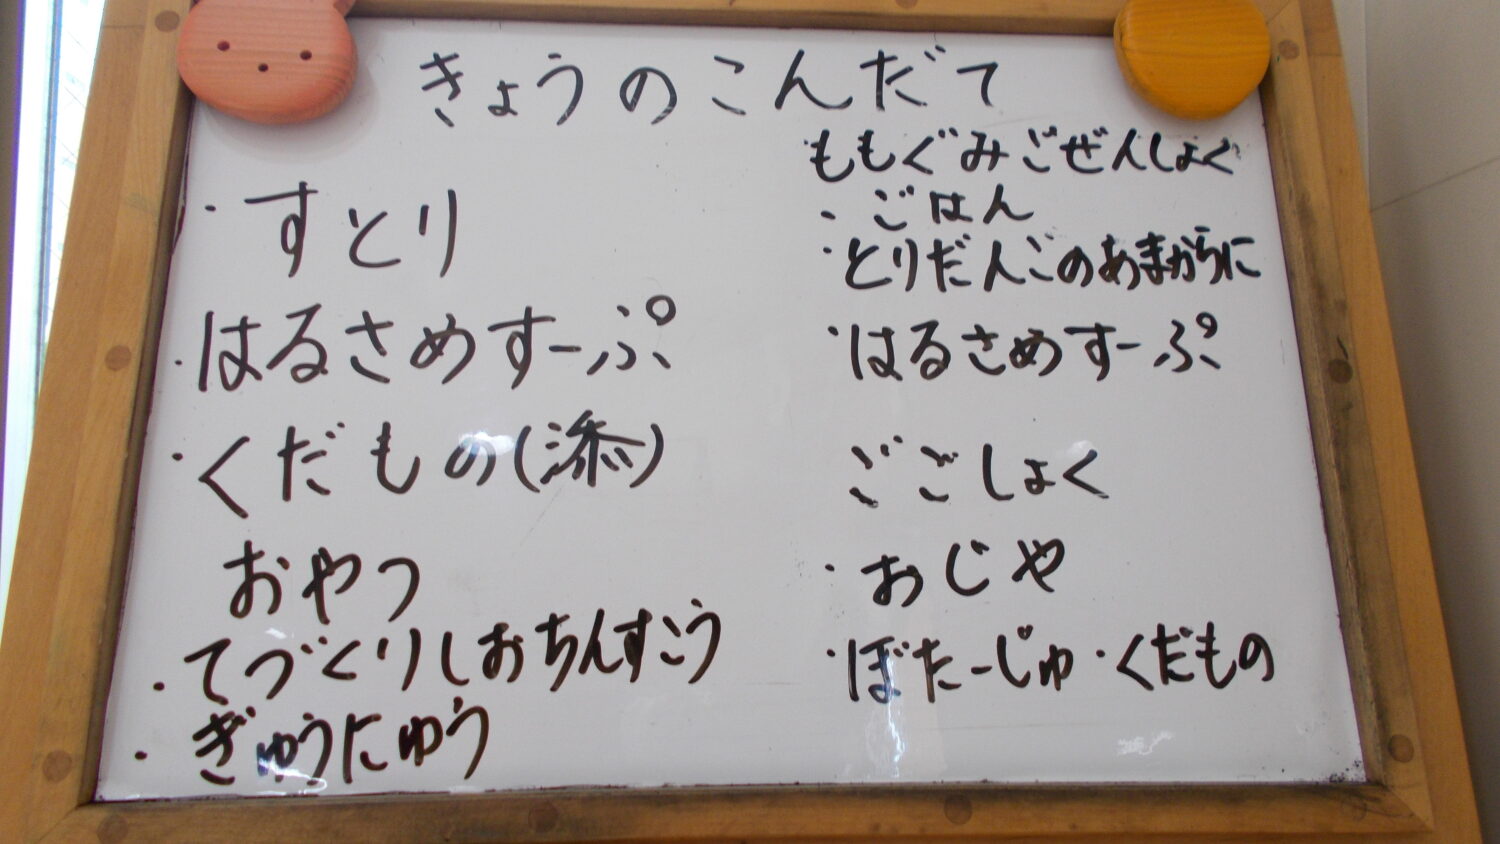 きょうのこんだて
・すとり
・はるさめすーぷ
・くだもの(添)
おやつ
・てづくりしおちんすこう
・ぎゅうにゅう
ももぐみごぜんしょく
・ごはん
・とりだんごのあまからに
・はるさめすーぷ
ごごしょく
・おじや
・ぽたーじゅ・くだもの